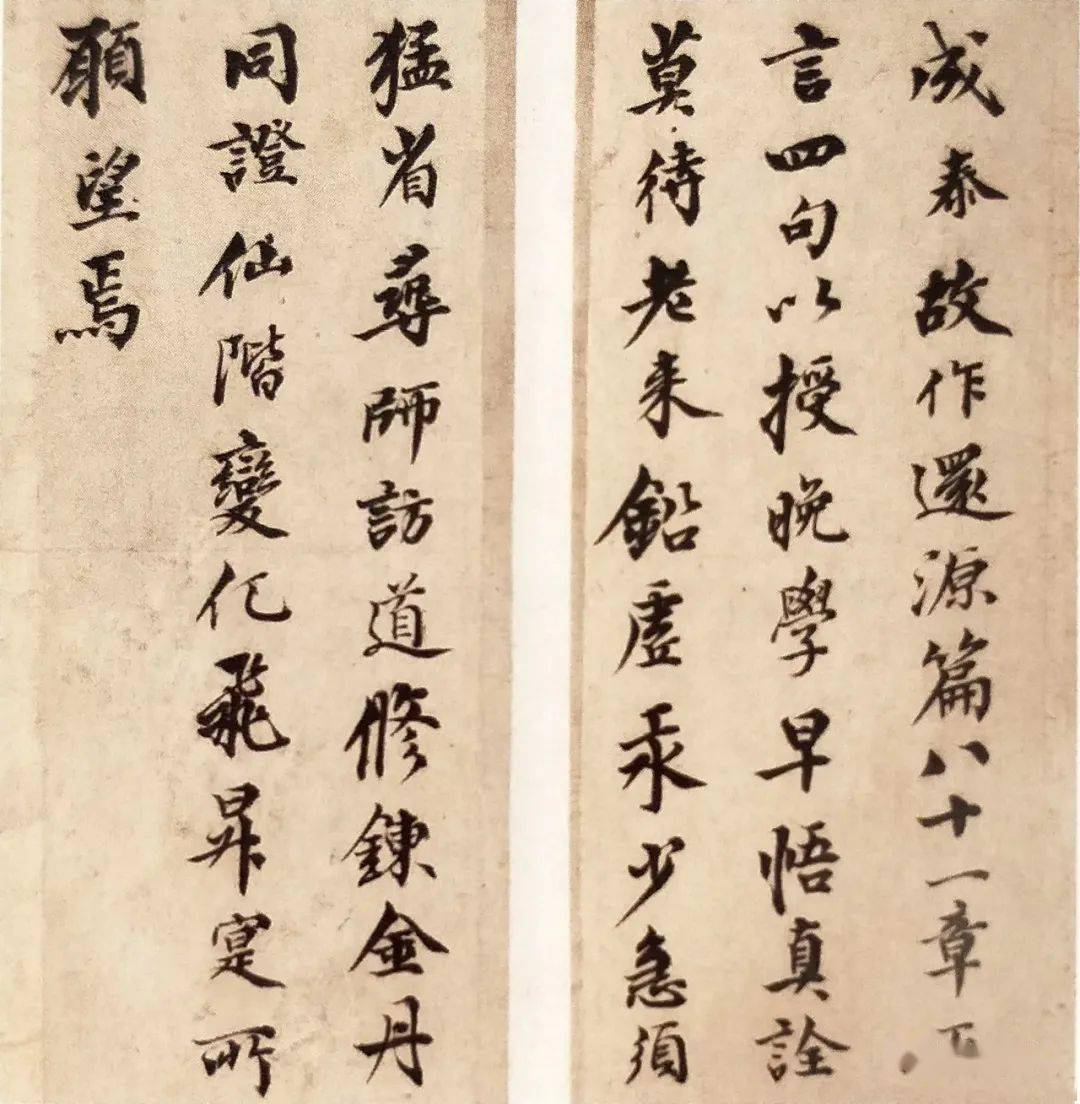 成泰故作還源篇八十一章
言四句以授晚學早悟真詮
莫待老来鉛虛汞少急須
猛省尋師訪道脩鍊金丹
同證仙階變化飛昇寔所
願望焉